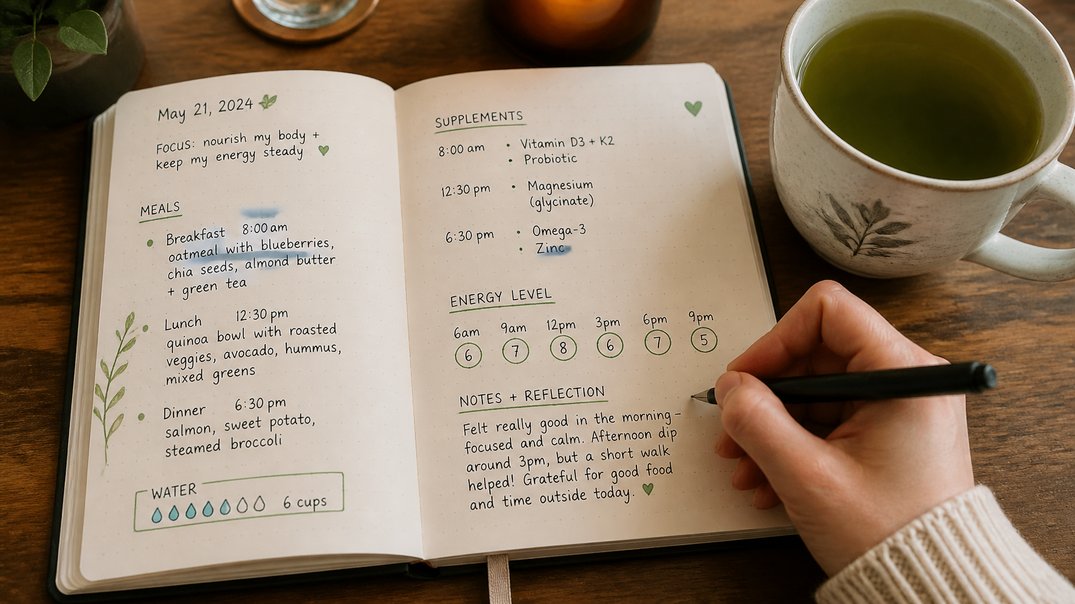 May 21, 2024
FOCUS: nourish my body +
keep my energy steady
MEALS
Breakfast 8:00 am
oatmeal with blueberries,
chia seeds, almond butter
+ green tea
Lunch 12:30 pm
quinoa bowl with roasted
veggies, avocado, hummus,
mixed greens
Dinner 6:30 pm
salmon, sweet potato,
steamed broccoli
WATER
6 cups
SUPPLEMENTS
8:00 am • Vitamin D3 + K2
• Probiotic
12:30 pm • Magnesium
(glycinate)
6:30 pm • Omega-3
• Zinc
ENERGY LEVEL
6am 9am 12pm 3pm 6pm 9pm
6 7 8 6 7 5
NOTES + REFLECTION
Felt really good in the morning –
focused and calm. Afternoon dip
around 3pm, but a short walk
helped! Grateful for good food
and time outside today.